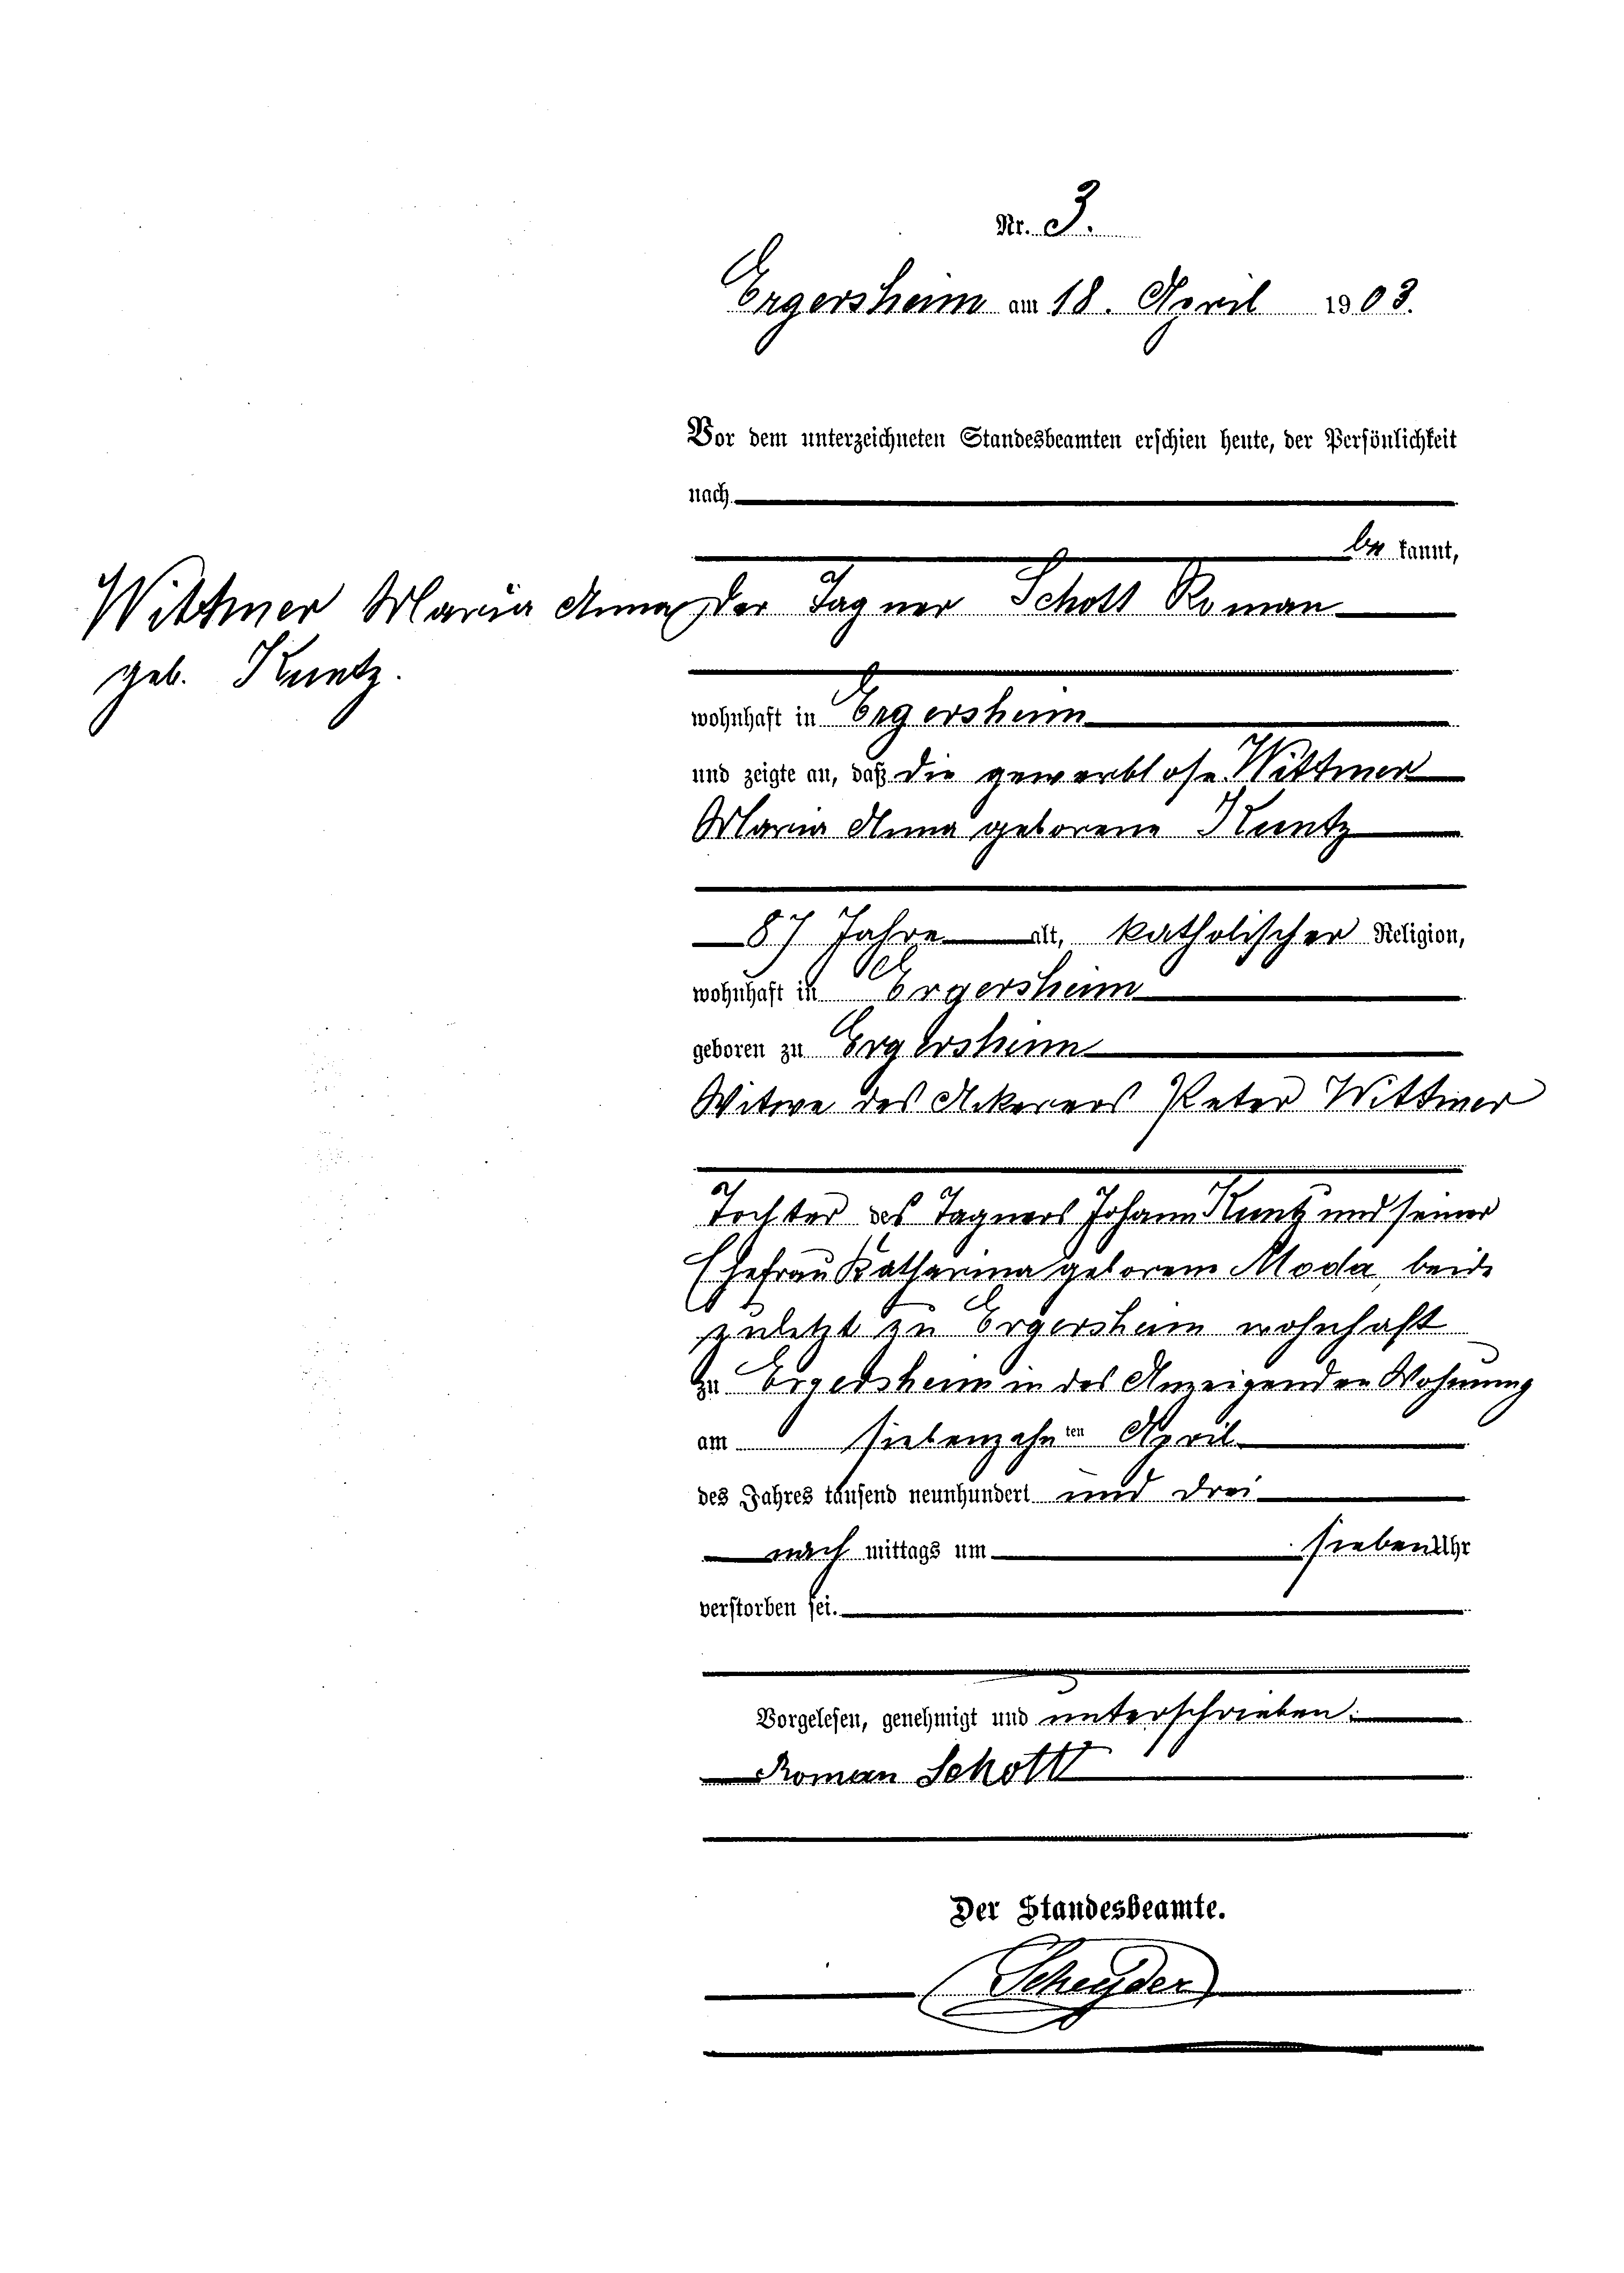 Nr. 3.
Ergersheim am 18. April 1903.
Vor dem unterzeichneten Standesbeamten erschien heute, der Persönlichkeit
nach
be kannt,
Wittmer Maria Anna
geb. Kuntz.
der Tagner Schott Roman
wohnhaft in Ergersheim
und zeigte an, daß die gewerblose Wittmer
Maria Anna geborene Kuntz
87 Jahre alt, katholischer Religion,
wohnhaft in Ergersheim
geboren zu Ergersheim
Witwe des Ackerers Peter Wittmer
Tochter des Tagners Johann Kuntz und seiner
Ehefrau Katharina geborene Moda, beide
zuletzt zu Ergersheim wohnhaft
zu Ergersheim in des Anzeigenden Wohnung
am siebenzehnten April
des Jahres tausend neunhundert und drei
nach mittags um sieben Uhr
verstorben sei.
Vorgelesen, genehmigt und unterschrieben.
Roman Schott
Der Standesbeamte.
Scheyder